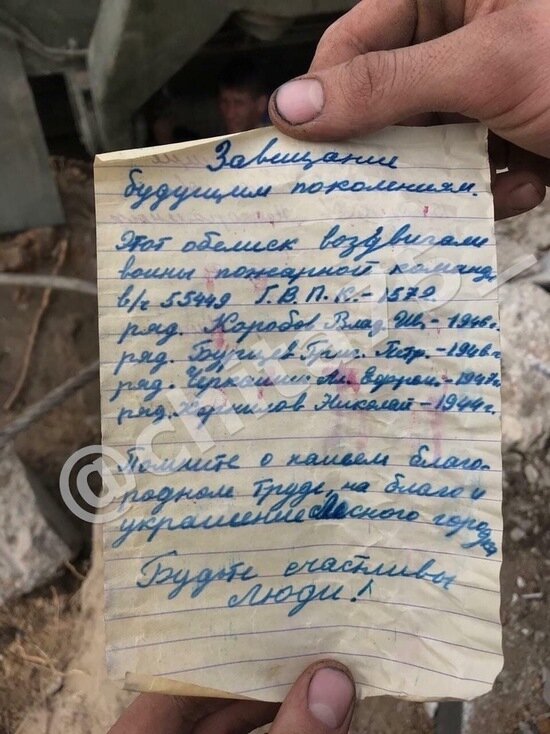 Завещание
будущим поколениям.
Этот обелиск воздвигали
воины пожарной команд
в/ч 55449 Г.В.П.К.-1572
ряд. Коробов Влад. Ив.-1946г.
ряд. Бурцев Григ. Петр.-1946г.
ряд. М. -1947г.
ряд. Корнилов Николай-1944г.
Помните о нашем благо-
родном труде, на благо и
украшение Лесного городка
Будьте счастливы
Люди!
@chita75_